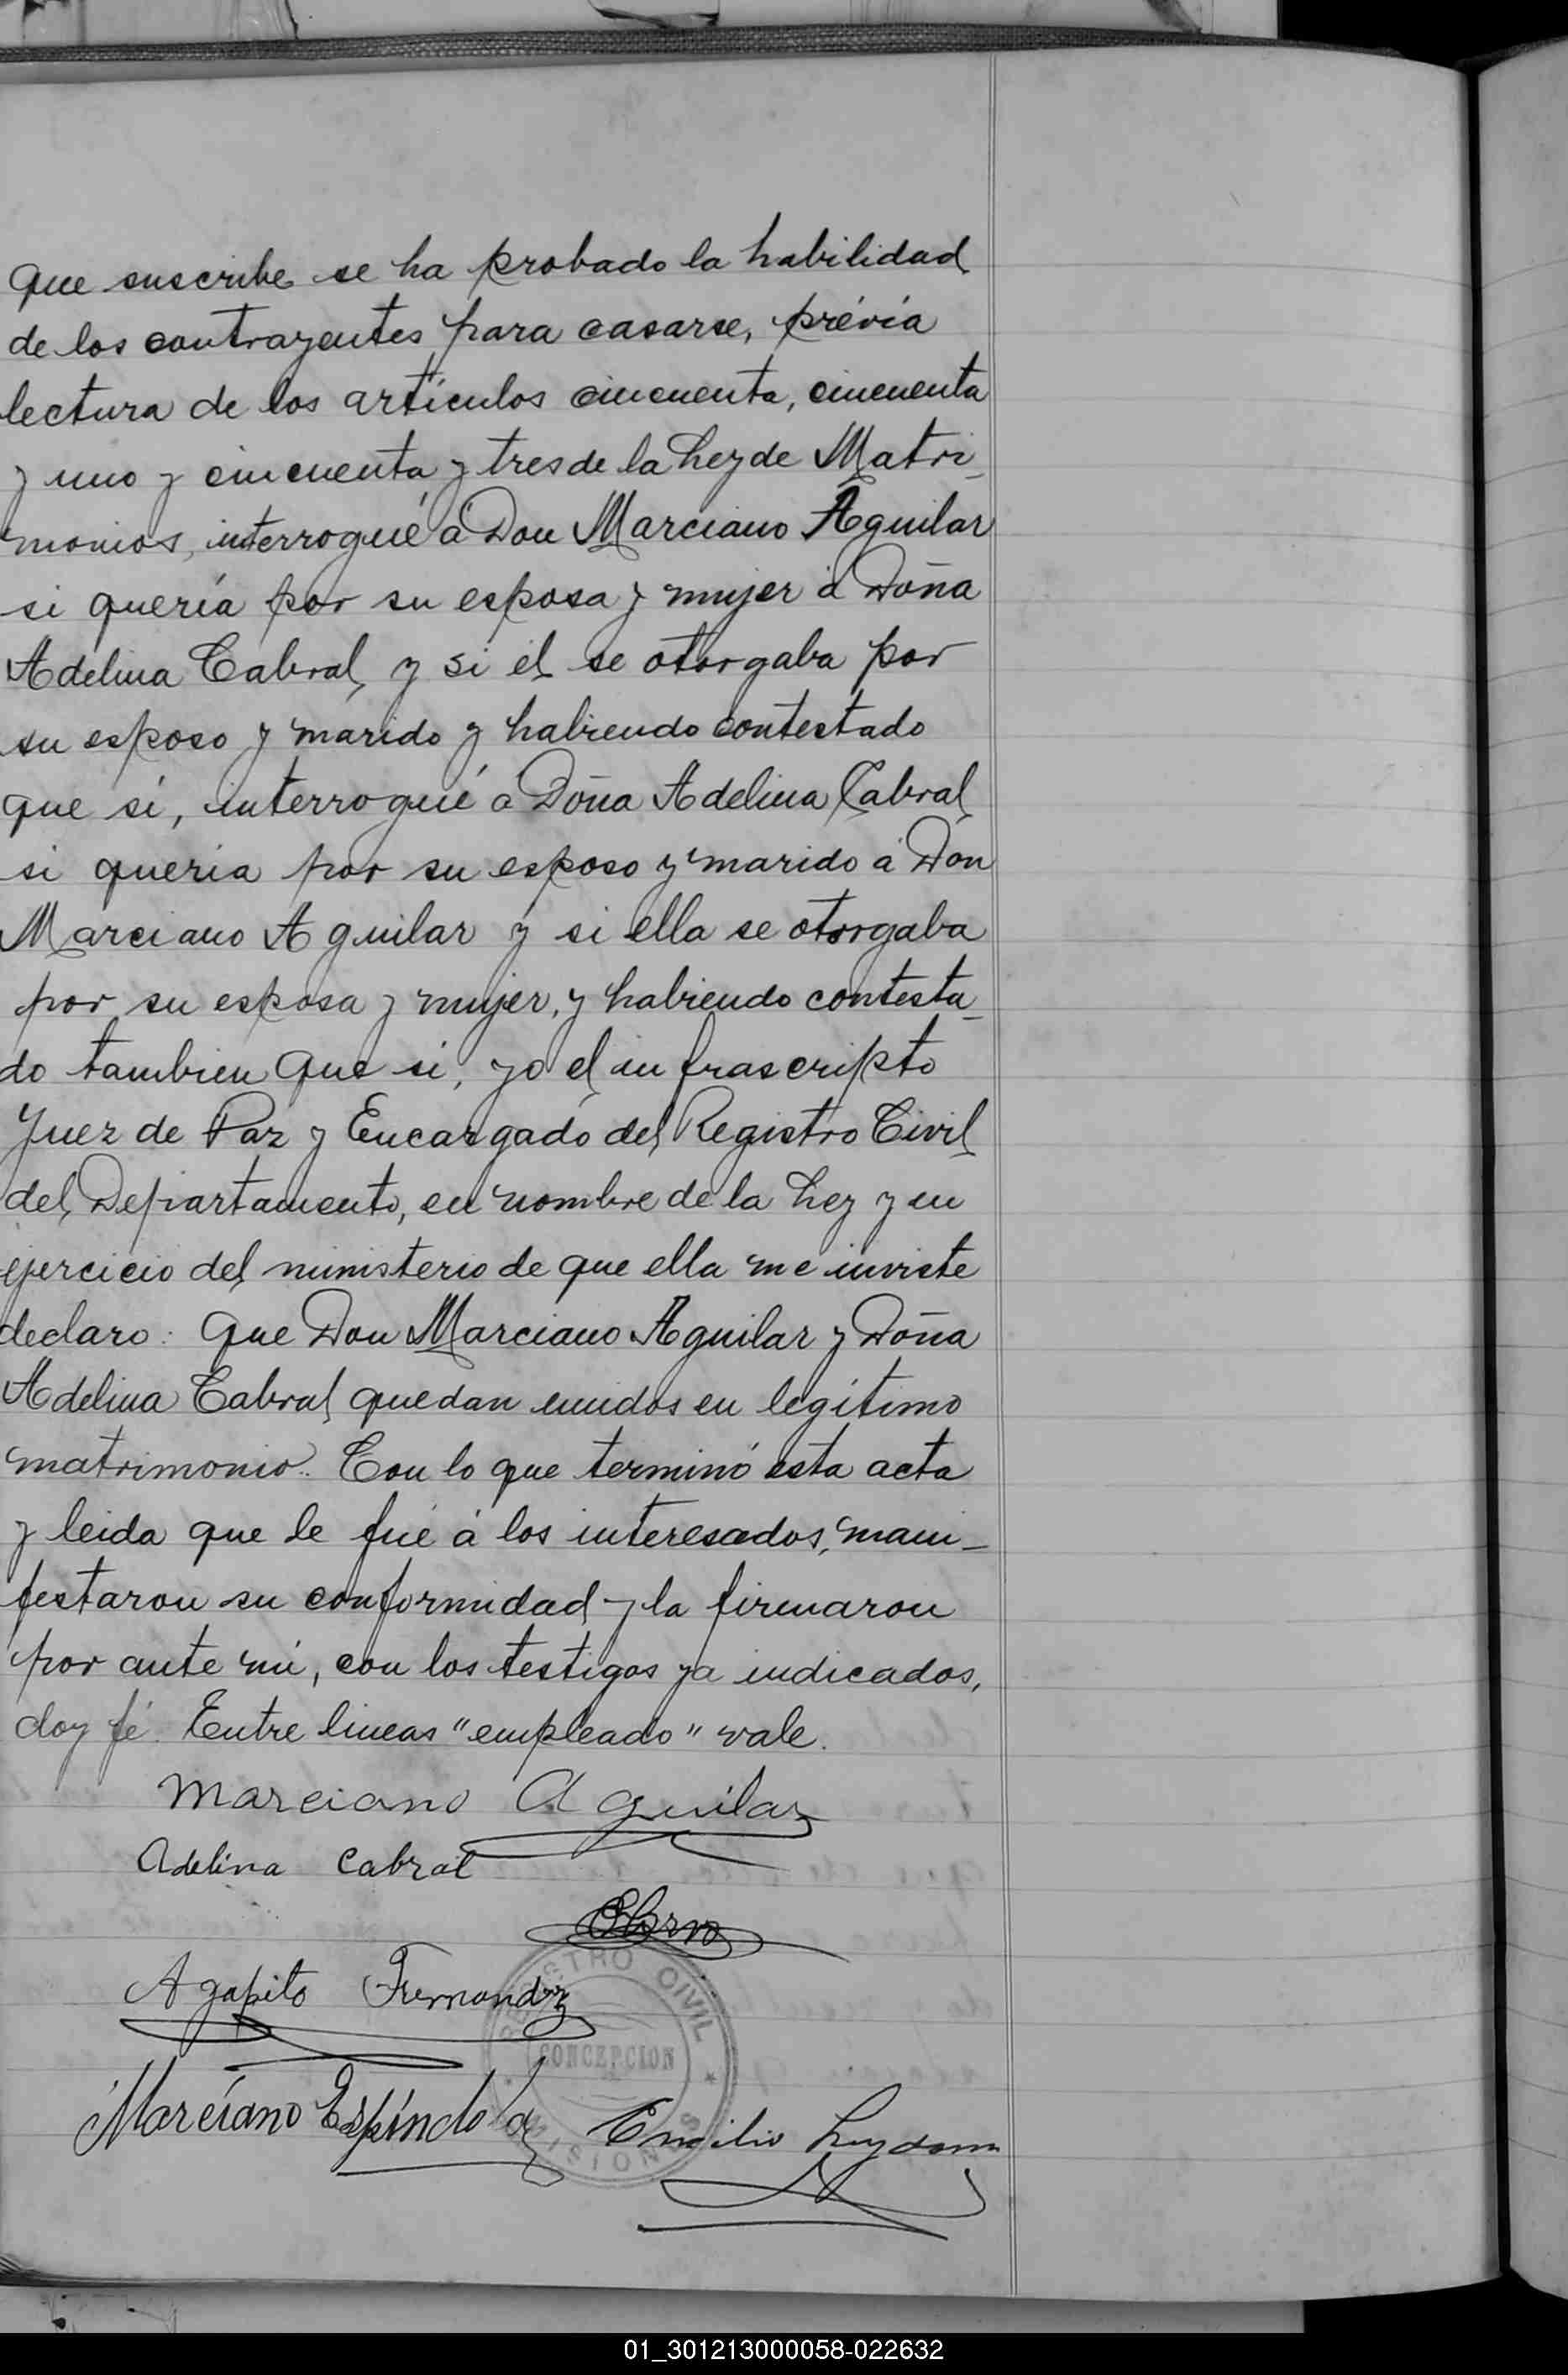 que suscribe se ha probado la habilidad
de los contrayentes para casarse, prévia
lectura de los artículos cincuenta, cincuenta
y uno y cincuenta y tres de la Ley de Matri-
monios, interrogué á Don Marciano Aguilar
si quería por su esposa y mujer á Doña
Adelina Cabral, y si él se otorgaba por
su esposo y marido y habiendo contestado
que si, interrogué a Doña Adelina Cabral
si queria por su esposo y marido á Don
Marciano Aguilar y si ella se otorgaba
por su esposa y mujer, y habiendo contesta-
do tambien que si, yo el infrascripto
Juez de Paz y Encargado del Registro Civil
del Departamento, en nombre de la Ley y en
ejercicio del ministerio de que ella me inviste
declaro: que Don Marciano Aguilar y Doña
Adelina Cabral quedan unidos en legítimo
matrimonio. Con lo que terminó esta acta
y leida que le fué á los interesados, mani-
festaron su conformidad y la firmaron
por ante mi, con los testigos ya indicados,
doy fé. Entre lineas "empleado" vale.
Marciano Aguilar
Adelina Cabral
Agapito Fernandz
REGISTRO CIVIL
CONCEPCION
MISIONES
Marciano Espíndola Emilio
01_301213000058-022632